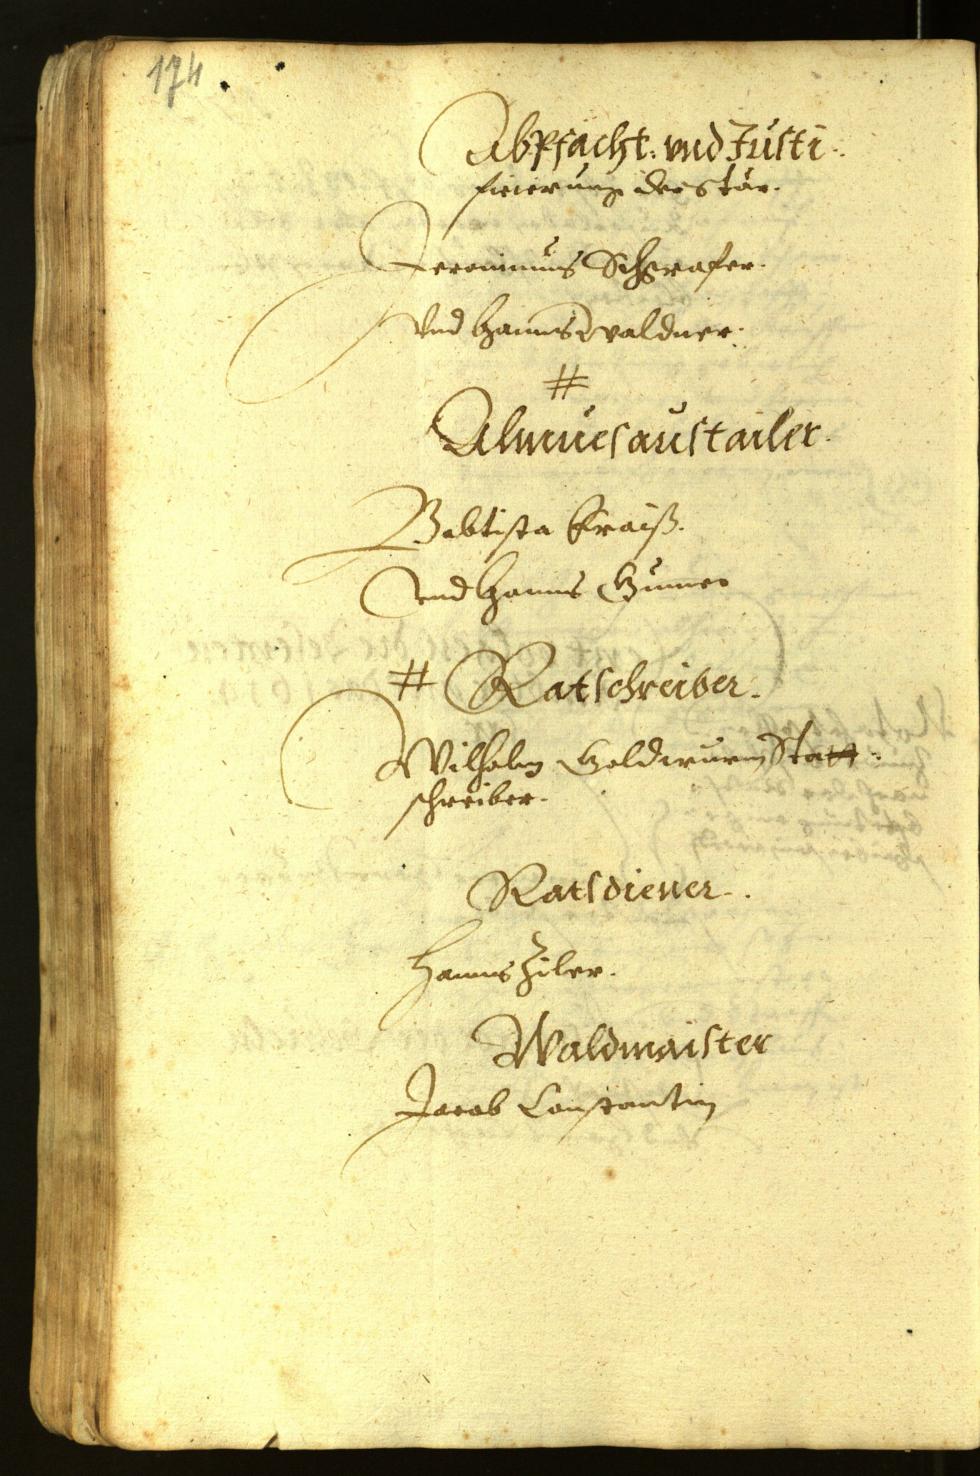 174
Abpfächt: vnd Justi
ficierung der Stär.
Jeronimus Schgrafer.
Vnd Hanns Waldner.
#
Almuesaustailer.
Babtista Kraiß.
Vnd Hanns Gumer
# Ratschreiber.
Wilhelm Goldwurm Statt
schreiber.
Ratsdiener.
Hanns Ziler.
Waldmaister
Jacob Constantin